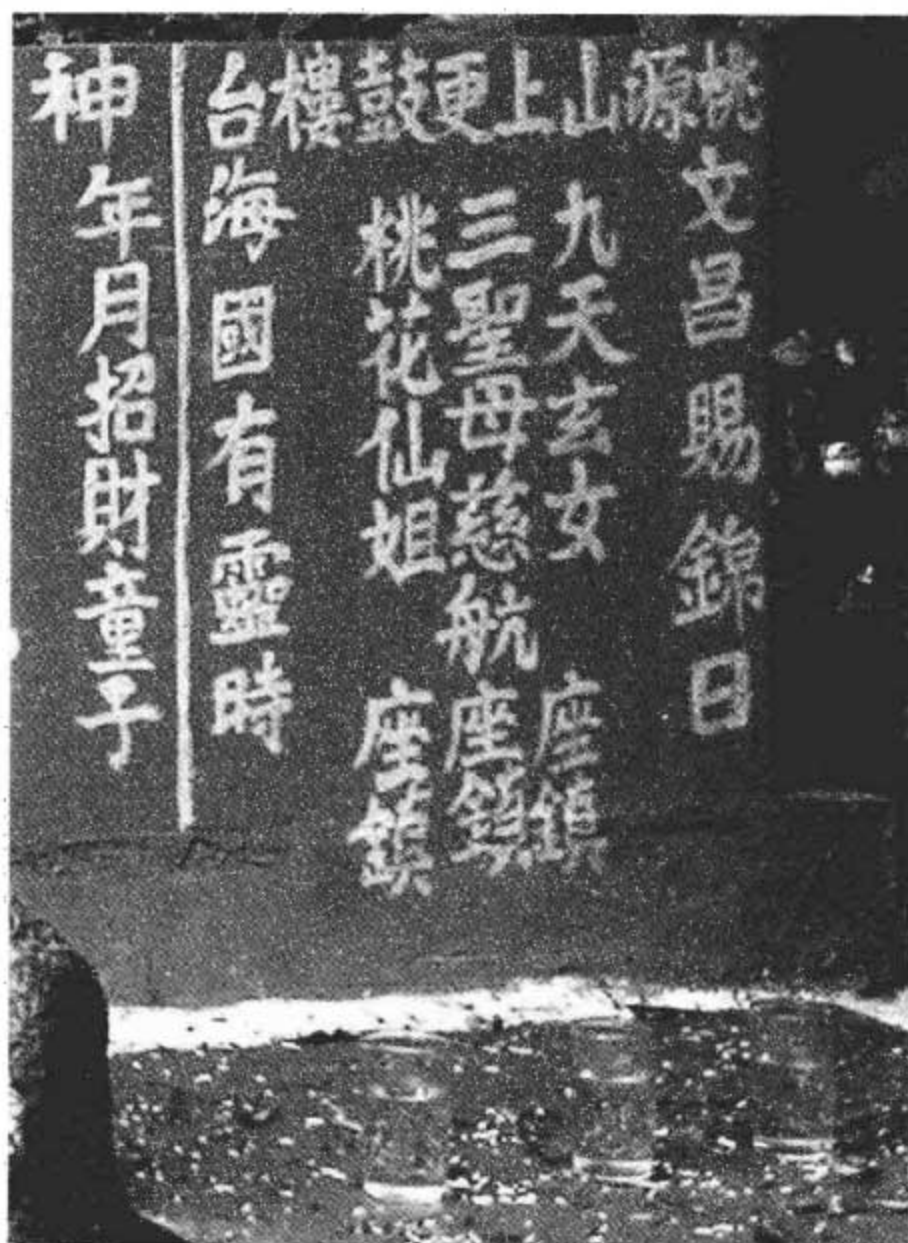 桃源山上更鼓樓
文昌賜錦日
九天玄女 座鎮
三聖母慈航 座鎮
桃花仙姐 座鎮
台海國有靈時
神年月招財童子